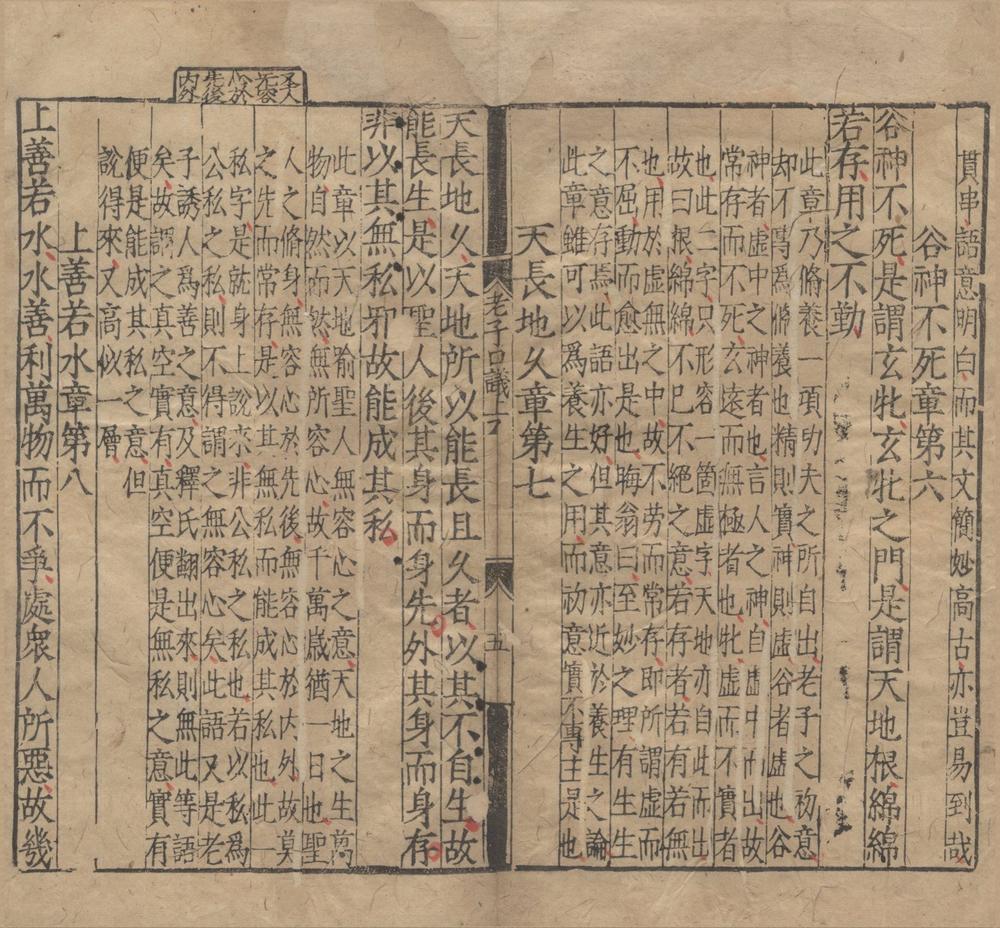 貫串語意明白而其文簡妙高古亦豈易到哉
谷神不死章第六
谷神不死是謂玄牝玄牝之門是謂天地根綿綿
若存用之不勤
此章乃脩養一項功夫之所自出老子之初意
却不爲脩養也精則實神則虛谷者虛也谷
神者虛中之神者也言人之神自虛中而出故
常存而不死玄遠而無極者也牝虛而不實者
也此二字只形容一箇虛字天地亦自此而出
故曰根綿綿不已不絕之意若存者若有若無
也用於虛無之中故不劳而常存即所謂虛而
不屈動而愈出是也晦翁曰至妙之理有生生
之意存焉此語亦好但其意亦近於養生之論
此章雖可以爲養生之用而初意實不專主是也
天長地久章第七
老子口義上
五
天長地久天地所以能長且久者以其不自生故
能長生是以聖人後其身而身先外其身而身存
非以其無私邪故能成其私
聖人無容心於先後内外
此章以天地喻聖人無容心之意天地之生萬
物自然而然無所容心故千萬歲猶一日也聖
人之脩身無容心於先後無容心於内外故莫
之先而常存是以其無私而能成其私也此一
私字是就身上說來非公私之私也若以私爲
公私之私則不得謂之無容心矣此語又是老
子誘人爲善之意及釋氏翻出來則無此等語
矣故謂之真空實有真空便是無私之意實有
便是能成其私之意但
說得來又高似一層
上善若水章第八
上善若水水善利萬物而不爭處衆人所惡故幾